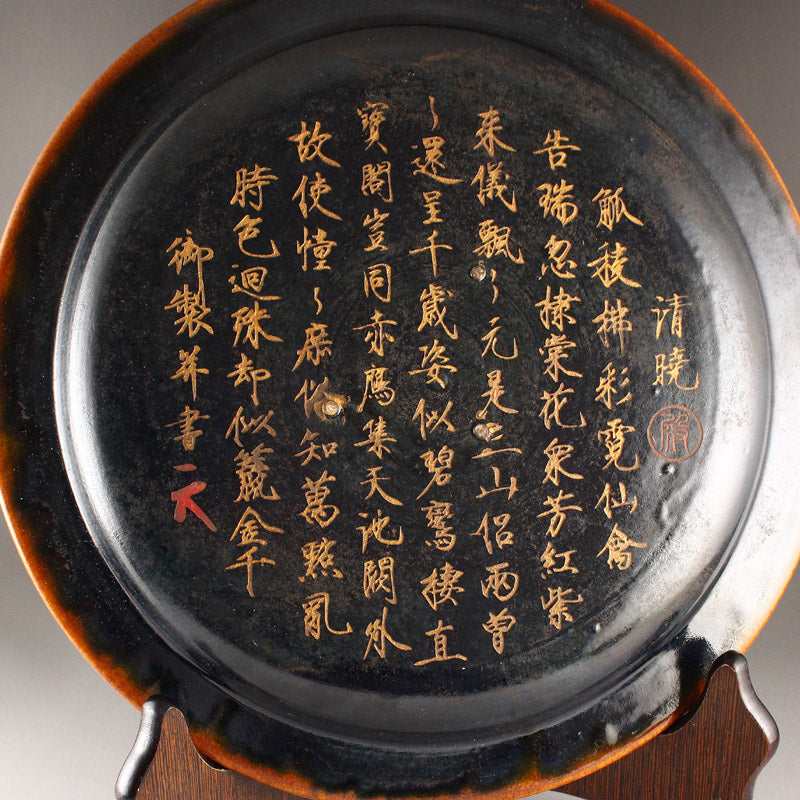 清曉
觚稜拂彩霓仙禽
告瑞忽棣棠花衆芳紅紫
来儀飄〻元是三山侶兩曾
〻還呈千歲姿似碧鸞棲直
寶閣豈同赤鴈集天池闕外
故使憧〻庶俗知萬點亂
時色迴殊却似金千
御製并書